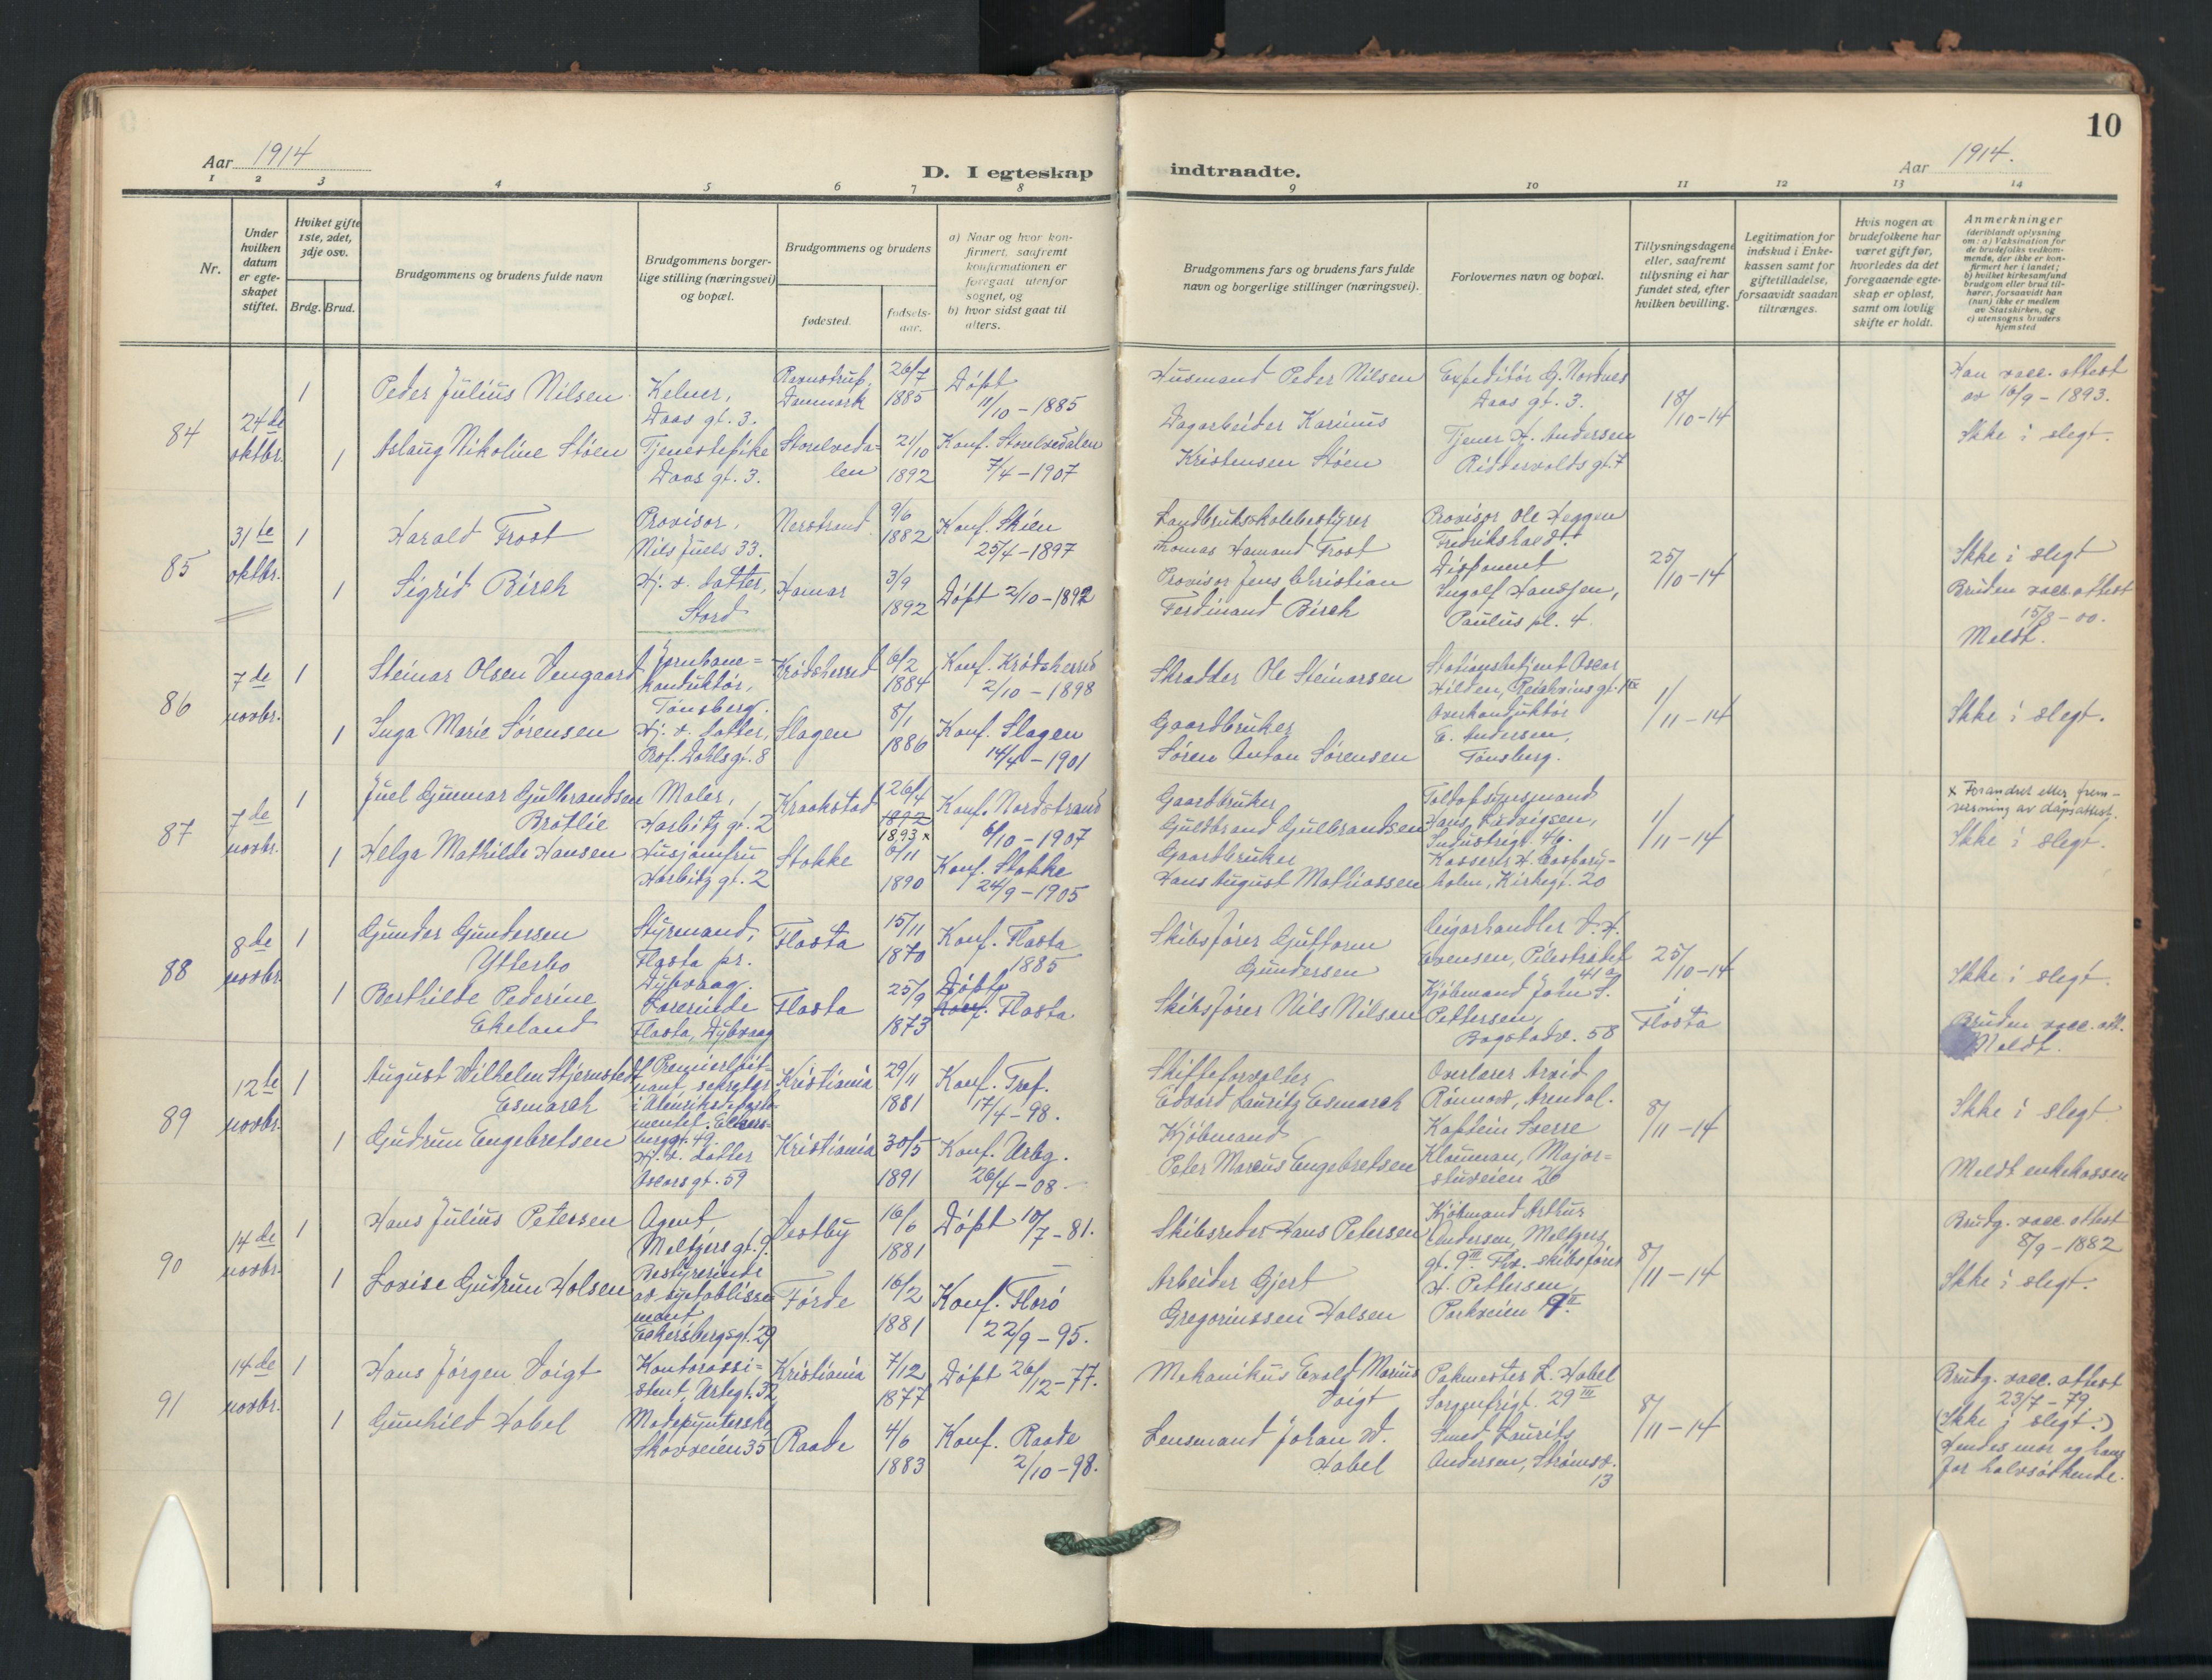 10
Aar 1914
D. I egteskap
indtraadte.
Aar 1914.
1 2 3 4 5 6 7 8 9 10 11 12 13 14
Nr.
Under hvilken datum er egteskapet stiftet.
Hviket gifte 1ste, 2det, 3dje osv.
Brdg. Brud.
Brudgommens og brudens fulde navn
Brudgommens borgerlige stilling (næringsvei) og bopæl.
Brudgommens og brudens
fødested.
fødselsaar.
a) Naar og hvor konfirmert, saafremt konfirmationen er foregaat utenfor sognet, og
b) hvor sidst gaat til alters.
Brudgommens fars og brudens fars fulde navn og borgerlige stillinger (næringsvei).
Forlovernes navn og bopæl.
Tillysningsdagene eller, saafremt tillysning ei har fundet sted, efter hvilken bevilling.
Legitimation for indskud i Enkekassen samt for giftetilladelse, forsaavidt saadan tiltrænges.
Hvis nogen av brudefolkene har været gift før, hvorledes da det foregaaende egteskap er opløst, samt om lovlig skifte er holdt.
Anmerkninger
(deriblandt oplysning om: a) Vaksination for de brudefolks vedkommende, der ikke er konfirmert her i landet; b) hvilket kirkesamfund brudgom eller brud tilhører, forsaavidt han (hun) ikke er medlem av Statskirken, og c) utensogns bruders hjemsted
84
24de oktbr.
1
Peder Julius Nilsen
Kelner,
Daas gt. 3.
Ravnstrup, Danmark
26/7 1885
Døpt
11/10 - 1885
Husmand Peder Nilsen
Expeditør G. Nordnes
Daas gt. 3.
18/10-14
Han vacc. attest
av 16/9 - 1893.
1
Aslaug Nikoline Støen
Tjenestepike
Daas gt. 3.
Storelvedalen
21/10 1892
Konf. Storelvedalen
7/4 - 1907
Dagarbeider Karinius
Kristensen Støen
Tjener H. Andersen
Riddervoldsgt. 7
Ikke i slegt.
85
31te oktbr.
1
Harald Frost
Provisor,
Nils Juels 33.
Nerstrand
9/6 1882
Konf. Skien
25/4 - 1897
Landbruksskolebestyrer
Thomas Hamand Frost
Provisor Ole Heggen
Fredrikshald.
25/10-14
Ikke i slegt
1
Sigrid Birch
Hj. v. datter,
Stord
Hamar
3/9 1892
Døpt 2/10 - 1892
Provisor Jens Christian
Ferdinand Birch
Disponent
Ingolf Handsen,
Paulus pl. 4.
Bruden vacc. attest
15/8 - 00.
Meldt.
86
7de novbr.
1
Steinar Olsen Vengaard
Jernbane=
konduktør,
Tønsberg.
Krødsherred
6/2 1884
Konf. Krødsherred
2/10 - 1898
Skrædder Ole Steinarsen
Stationsbetjent Oscar
Hilden,
1/11-14
1
Inga Marie Sørensen
Hj. v. datter,
Prof. Dahls gt. 8
Slagen
8/1 1886
Konf. Slagen
14/4 - 1901
Gaardbruker
Søren Anton Sørensen
Overkonduktør
E. Andersen,
Tønsberg.
Ikke i slegt.
87
7de novbr.
1
Juel Gunnar Gulbrandsen
Brøtlie
Maler,
Harbitz gt. 2
Kraakstad
26/4 1892 1893 x
Konf. Nordstrand
6/10 - 1907
Gaardbruker
Guldbrand Gulbrandsen
Toldopsynsmand
Hans Ludvigsen,
Industrigt. 46.
1/11-14
x Forandret efter frem-
visning av dåpsattest.
Ikke i slegt.
1
Helga Mathilde Hansen
Husjomfru
Harbitz gt. 2
Stokke
6/11 1890
Konf. Stokke
24/9 - 1905
Gaardbruker
Hans August Mathiassen
Kirkegt. 20
88
8de novbr.
1
Gunder Gundersen
Ytterbo
Styrmand,
Flosta pr.
Dybvaag.
Flosta
15/11 1870
Konf. Flosta
1885
Skibsfører Guttorm
Gundersen
Cigarhandler D. H.
Evensen, Pilestrædet
41 a
25/10-14
i
Flosta
Ikke i slegt.
1
Berthilde Pederine
Ekeland
Lærerinde
Flosta, Dybvaag
Flosta
25/9 1873
Døbt
Konf. Flosta.
Skibsfører Nils Nilsen
Kjøbmand John S.
Pettersen,
Bogstadv. 58
Bruden vacc. att.
Meldt.
89
12te novbr.
1
August Wilhelm Stjernstedt
Esmarch
Premierløit-
nant, sekretær
i Utenriksdeparte-
mentet. Eilers-
bergt. 49.
Kristiania
29/11 1881
Konf. Tref.
17/4 - 98.
Skifteforvalter
Edvard Lauritz Esmarch
Overlærer Arvid
Rønnov, Arendal.
8/11-14
Ikke i slegt
1
Gudrun Engebretsen
Hj. v. datter
Oscars gt. 59
Kristiania
30/5 1891
Konf. Urbg.
26/4 - 08.
Kjøbmand
Peter Marcus Engebretsen
Kaptein Sverre
Klouman, Major=
stuveien 26
Meldt enkekassen
90
14de novbr.
1
Hans Julius Petersen
Agent
Meltzers gt. 9.
Vestby
16/6 1881
Døpt 10/7 - 81.
Skibsreder Hans Petersen
Kjøbmand Arthur
Andersen, Meltzers
gt. 9 III Fhv. skibsfører
8/11-14
Brudg. vacc. attest
8/9 - 1882
1
Lovise Gudrun Holsen
Bestyrerinde
av syetablisse
ment
Eckersbergsgt. 29
Førde
16/2 1881
Konf. Florø
22/9 - 95.
Arbeider Gjert
Gregoriussen Holsen
H. Pettersen,
Parkveien
Ikke i slegt.
91
14de novbr.
1
Hans Jørgen Voigt
Kontorassi=
stent, Urtegt. 32
Kristiania
7/12 1877
Døpt 26/12 - 77.
Mekanikus Evald Marius
Voigt
Pakmester L. Habel
Sorgenfrigt. 29 III
8/11-14
Brudg. vacc. attest
23/7 - 79
(Ikke i slegt.)
1
Gunhild Habel
Modepynterske
Skovveien 35
Raade
4/6 1883
Konf. Raade
2/10 - 98.
Lensmand Johan W.
Habel
Smed Laurits
Andersen, Strømsv.
13
Hendes mor og hans
far halvsøskende.